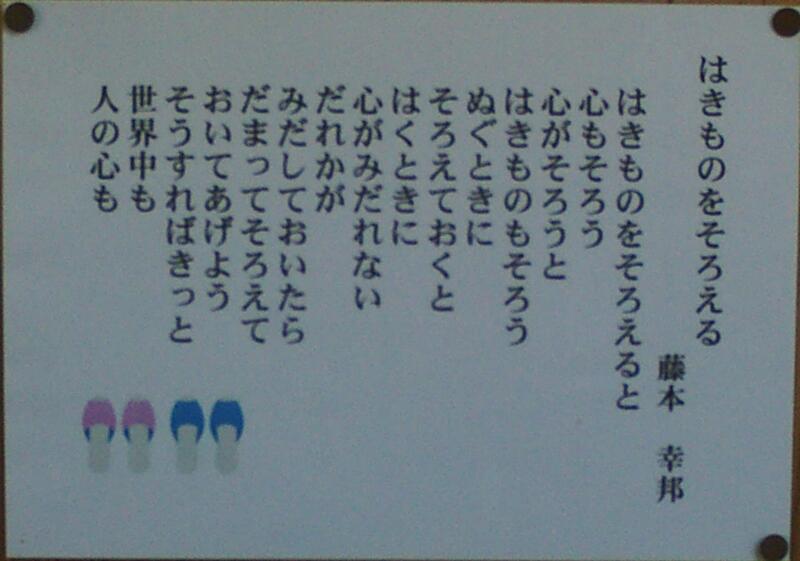 はきものをそろえる
藤本 幸邦
はきものをそろえると
心もそろう
心がそろうと
はきものもそろう
ぬぐときに
そろえておくと
はくときに
心がみだれない
だれかが
みだしておいたら
だまってそろえて
おいてあげよう
そうすればきっと
世界中も
人の心も